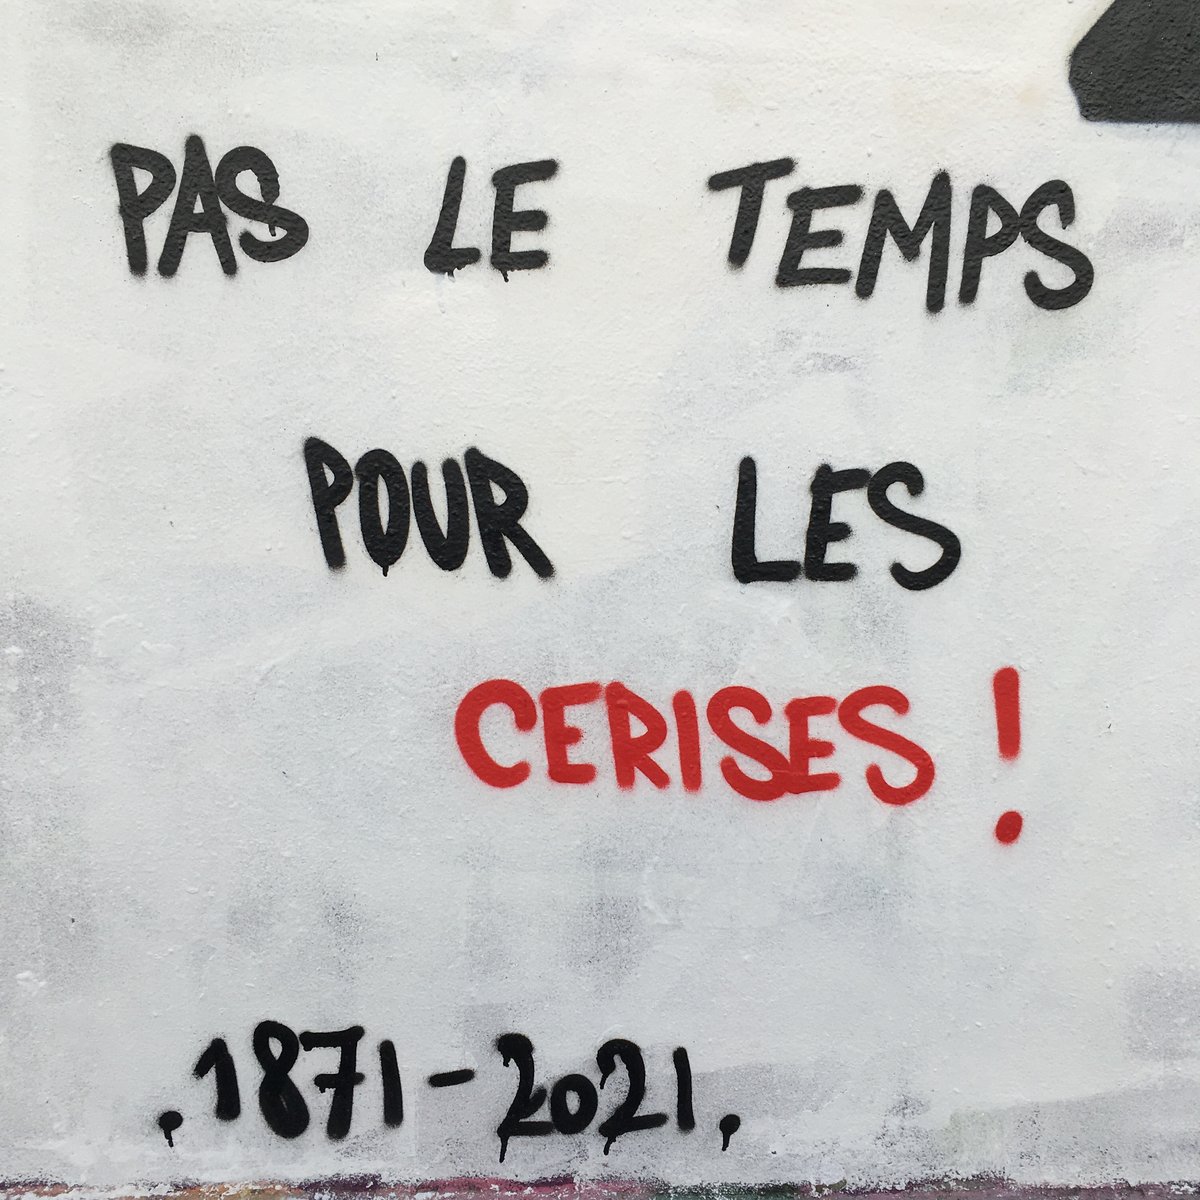 PAS LE TEMPS
POUR LES
CERISES !
.1871-2021.